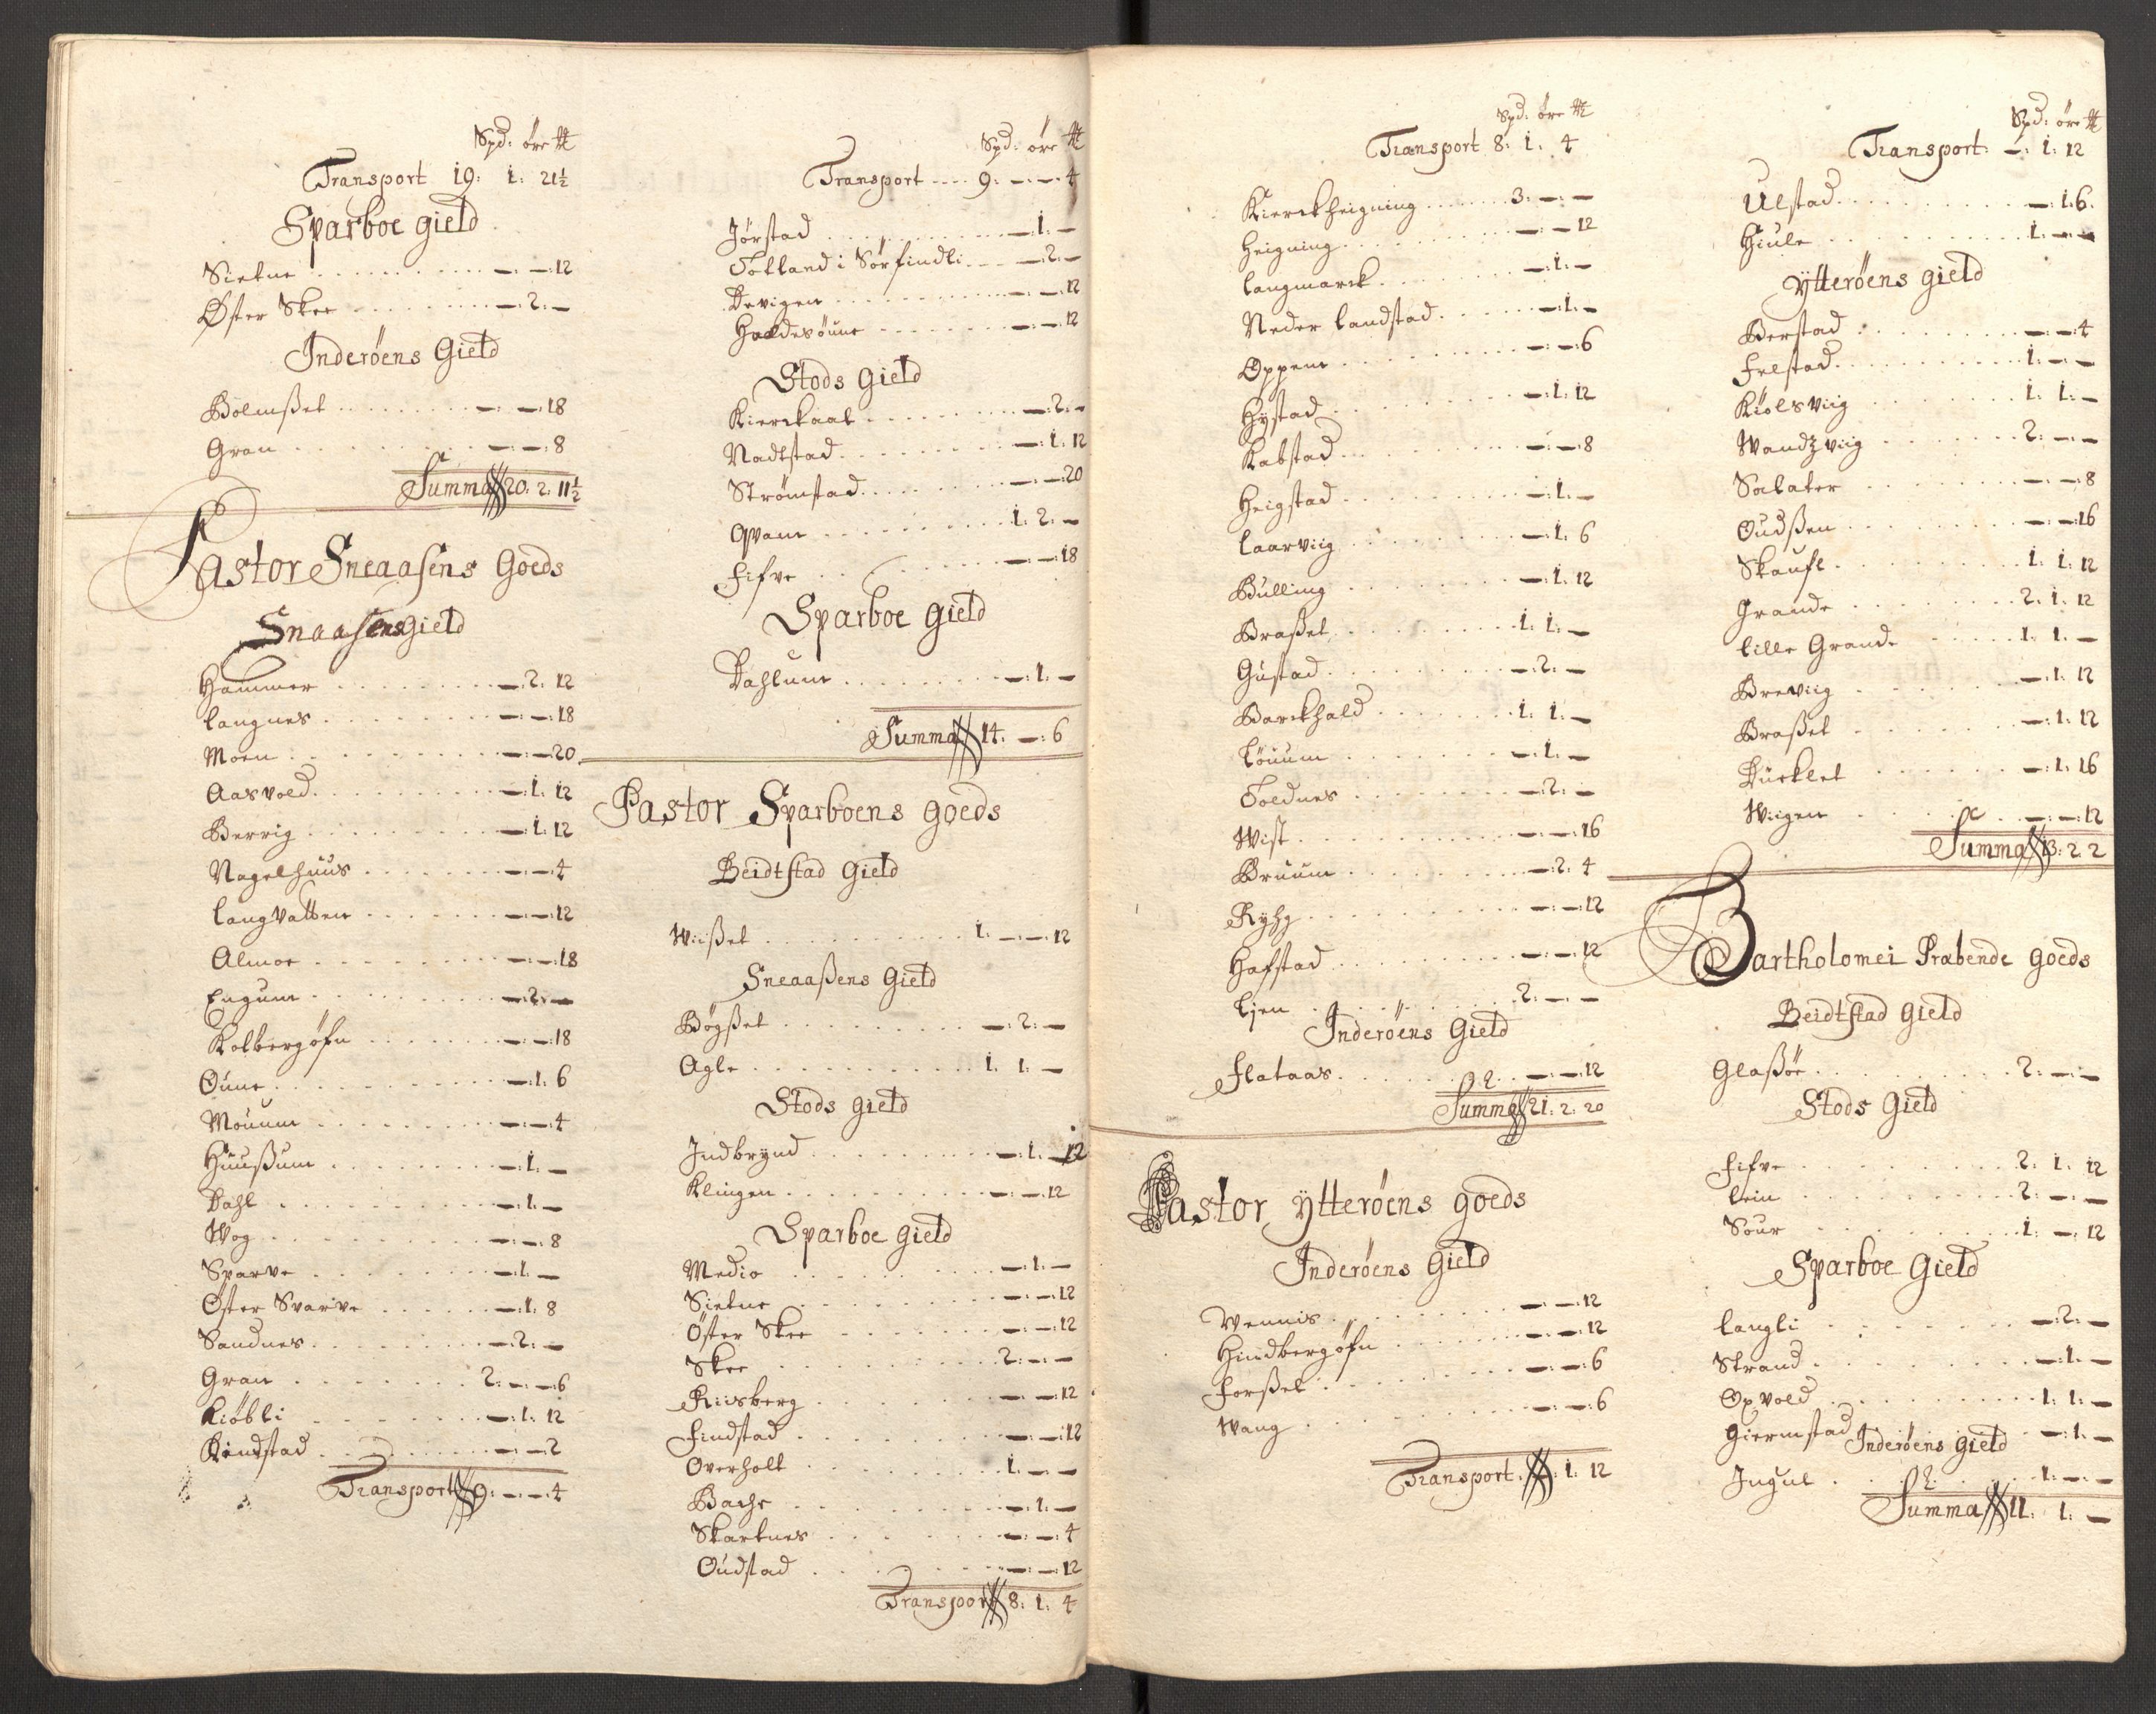 Spd: öre ℔
Transport 19: 1: 21½
Sparboe gield
Sietne — — 12
Øster Skee — 2: —
Inderöens Gield
Bolmßet — — 18
Gran — — 8
Summa 20: 2: 11½
Pastor Sneaasens Goeds
Snaasens gield
Hammer — 2: 12
Langnes — — 18
Moen — — 20
Aasvold — 1: 12
Berrig — 1: 12
Nagelhuus — — 4
Langvatten — — 12
Almoe — — 18
Engum — 2: —
Kolbergöfn — — 18
Oune — 1: 6
Mouum — — 4
Huußum — 1: —
Dahl — 1: —
Wog — — 8
Svarve — 1: —
Öster Svarve — 1: 8
Sandnes — 2: —
Gran 2: — 6
Kiöbli — 1: 12
Kindstad — — 2
Transport 9: — — 4
Spd: öre ℔
Transport 9: — — 4
Jörstad — 1: —
Totland i Sörfindli — 2: —
Devigen — — 12
Haldesöune — — 12
Stods Gield
Kierckaal — 2: —
Nadtstad — 1: 12
Strömstad — — 20
Qvam 1: 2: —
Fifve — — 18
Sparboe Gield
Dahlum — 1: —
Summa 14: — 6
Pastor Sparboens goeds
Beidtstad Gield
Wiißet 1: — 12
Sneaaßens Gield
Bögßet — 2: —
Agle 1: 1: —
Stods gield
Indbrynd — 1: 12
Klingen — — 12
Sparboe gield
Medio — 1: —
Sietne — — 12
Öster Skee — — 12
Skee 2: — —
Riisberg — — 12
Findstad — — 12
Overholt 1: — —
Bache — 1: —
Skartnes — — 4
Oudstad — — 12
Transport 8: 1: 4
Spd: öre ℔
Transport 8: 1: 4
Kierckheigning 3: — —
Heigning — — 12
Langmarck — 1: —
Neder Landstad — 1: —
Oppem — — 6
Hystad — 1: 12
Kabstad — — 8
Heigstad — 1: —
Laarviig — 1: 6
Bulling — 1: 12
Braßet 1: 1: —
Gustad — 2: —
Barckhald 1: 1: —
Löuum — 1: —
Toldnes — 2: —
Wist — — 16
Bruum — 2: 4
Ryhg — — 12
Hafstad — — 12
Lien 2: — —
Inderöens Gield
Flataas — — 12
Summa 21: 2: 20
Pastor Ytteröens goeds
Inderöens Gield
Wennis — — 12
Hindbergöfn — — 12
Forßet — — 6
Wang — — 6
Transport — 1: 12
Spd: öre ℔
Transport — 1: 12
Ulstad — 1: 6
Hiule 1: — —
Ytteröens gield
Berstad — — 4
Felstad 1: — —
Kiölsviig 1: 1: —
Wandzviig 2: — —
Salater — — 8
Oudßen — — 16
Skaufl 1: 1: 12
Grande 2: 1: 12
Lille Grande 1: 1: —
Breviig — 1: 12
Braßet — 1: 12
Dücklet — 1: 16
Wiigen — — 12
Summa 13: 2: 2
Bartholomei Præbende goeds
Beidtstad gield
Glaßöe 2: — —
Stods Gield
Fifve 2: 1: 12
Lein 2: — —
Sour 1: — 12
Sparboe Gield
Langli — 2: —
Strand — 1: —
Oxvold 1: 1: —
Giermstad — 1: —
Inderöens gield
Jngul 1: — —
Summa 11: 1: —